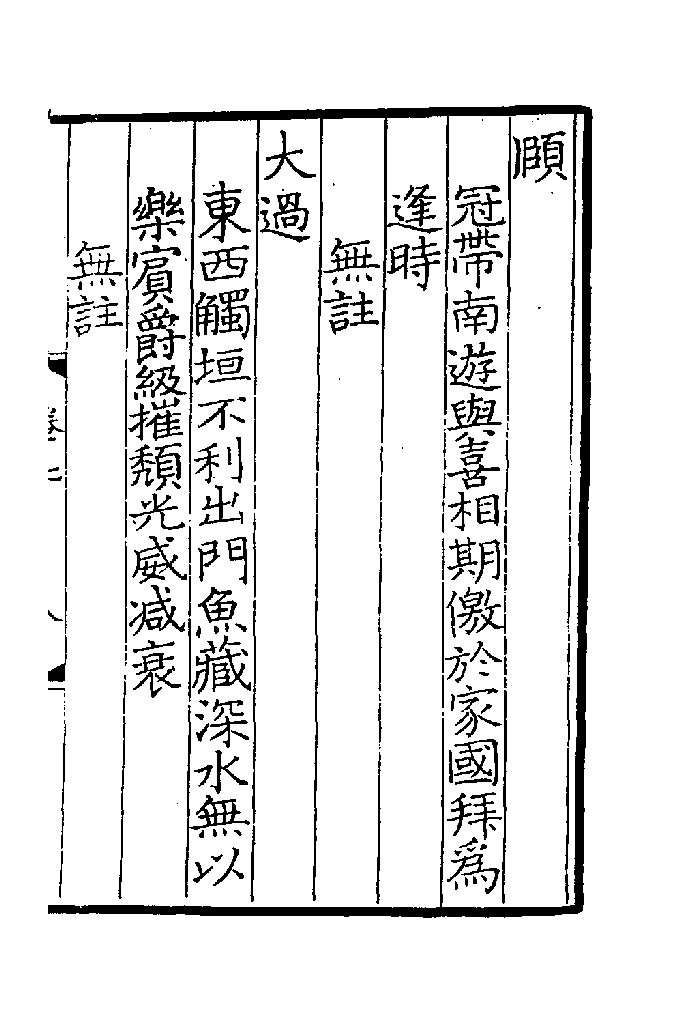 頤
冠帶南遊與喜相期儌於家國拜爲
逢時
無註
大過
東西觸垣不利出門魚藏深水無以
樂賓爵級摧頹光威减衰
無註